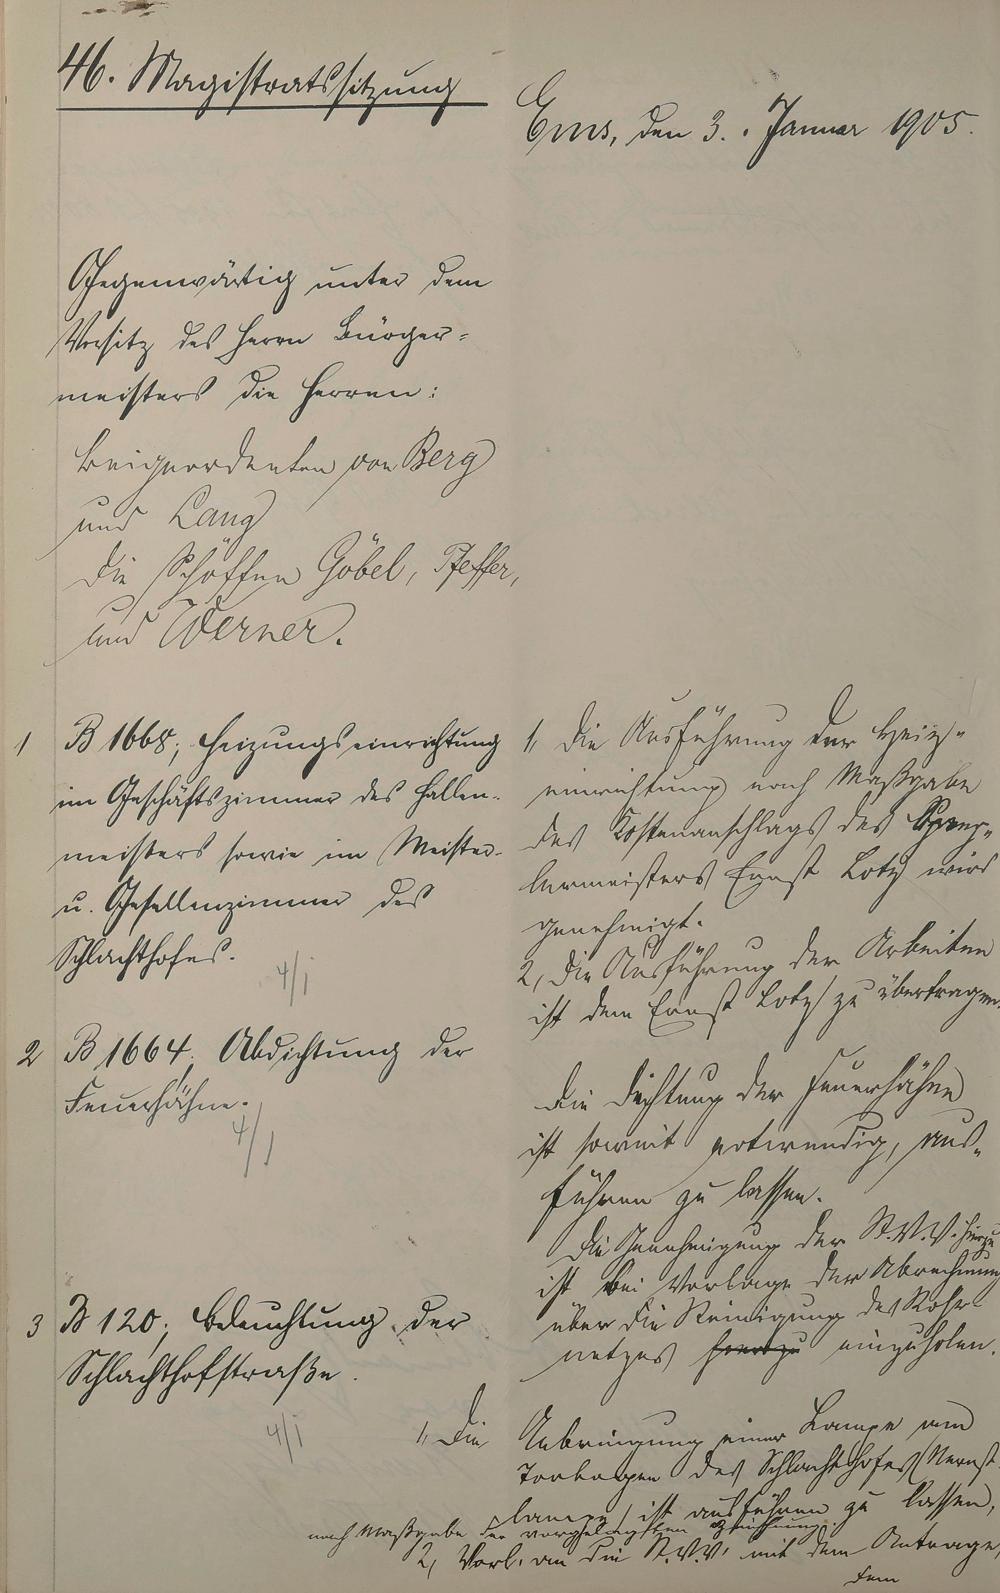 46. Magistratssitzung
Ems, den 3. Januar 1905.
Gegenwärtig unter dem
Vorsitz des Herrn Bürger-
meisters die Herren:
Beigeordneten von Berg
und Lang
die Schöffen Göbel, Pfeffer,
und Werner.
1 B 1668; Heizungseinrichtung
im Geschäftszimmer des Hallen-
meisters sowie im Meister-
u. Gesellenzimmer des
Schlachthofes.
4/1
1, Die Ausführung der Heiz-
einrichtung nach Maßgabe
des Kostenanschlags des Speng-
lermeisters Ernst Loty wird
genehmigt.
2, Die Ausführung der Arbeiten
ist dem Ernst Loty zu übertragen.
2 B 1664. Abdichtung der
Feuerhähne.
4/1
Die Dichtung der Feuerhähne
ist soweit notwendig, aus-
führen zu lassen.
Die Genehmigung der St.V.V. hierzu
ist bei Vorlage der Abrechnung
über die Reinigung des Rohr-
netzes hierzu einzuholen.
3 B 120; Beleuchtung der
Schlachthofstraße.
4/1
1, Die Anbringung einer Lampe am
Torbogen des Schlachthofes (Nernst-
lampe) ist ausführen zu lassen,
nach Maßgabe der vorgelegten Zeichnung.
2, Vorl. an die St.V.V. mit dem Antrage,
dem